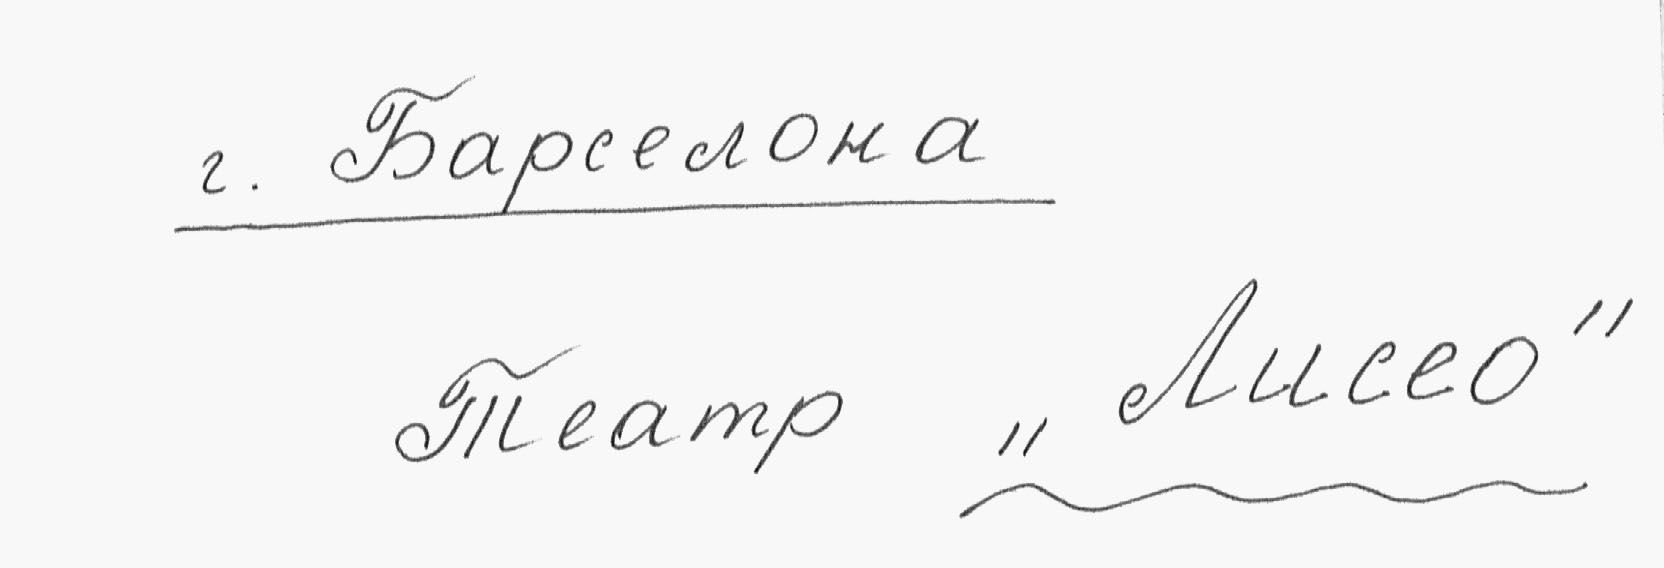 г. Барселона
Театр „Лисео"